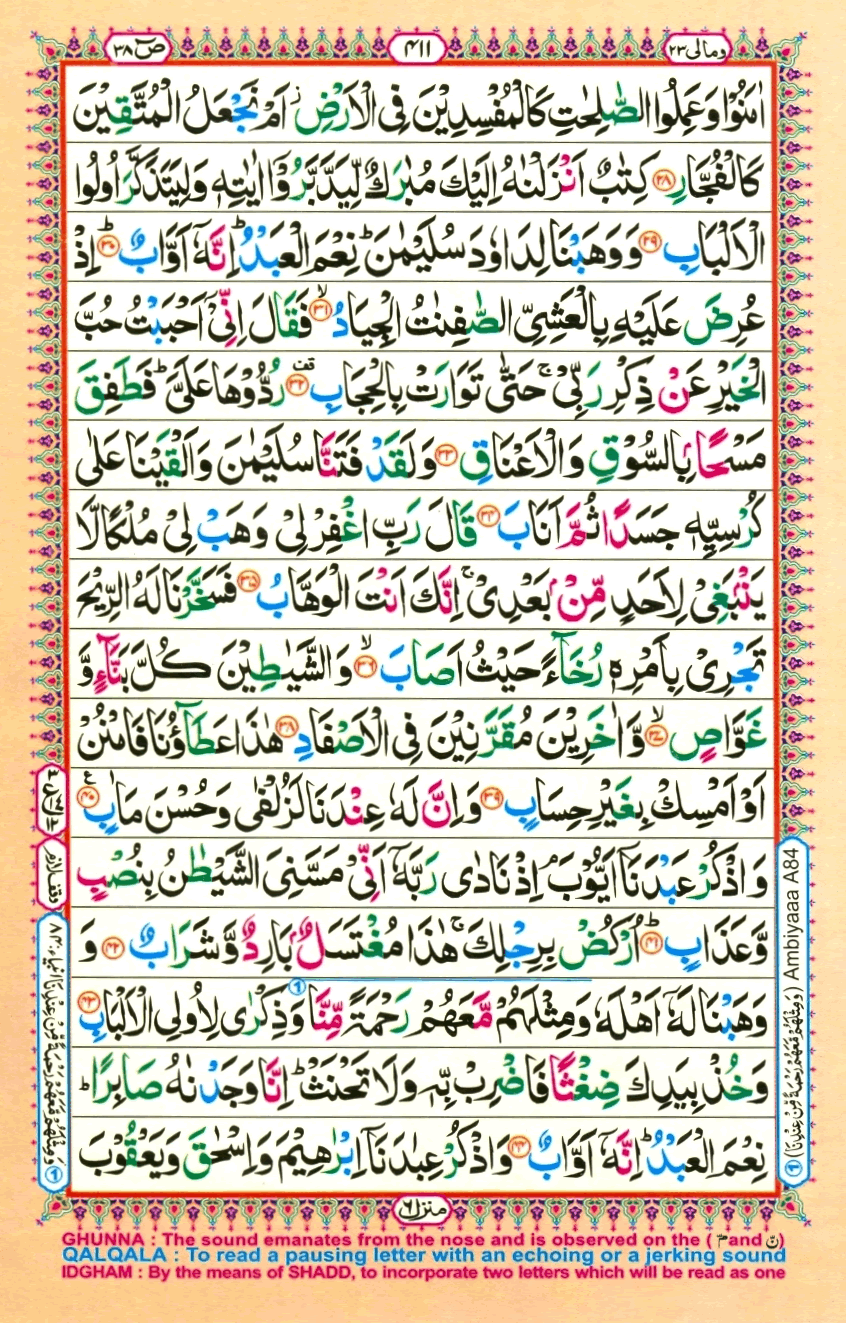 ومالی ۲۳
۴۱۱
صٓ ۳۸
اٰمَنُوْا وَعَمِلُوا الصّٰلِحٰتِ كَالْمُفْسِدِيْنَ فِى الْاَرْضِ ۡ اَمْ نَجْعَلُ الْمُتَّقِيْنَ
كَالْفُجَّارِ ﴿۲۸﴾ كِتٰبٌ اَنْزَلْنٰهُ اِلَيْكَ مُبٰرَكٌ لِّيَدَّبَّرُوْۤا اٰيٰتِهٖ وَلِيَتَذَكَّرَ اُولُوا
الْاَلْبَابِ ﴿۲۹﴾ وَوَهَبْنَا لِدَاوٗدَ سُلَيْمٰنَ ؕ نِعْمَ الْعَبْدُ ؕ اِنَّهٗۤ اَوَّابٌ ؕ ﴿۳۰﴾ اِذْ
عُرِضَ عَلَيْهِ بِالْعَشِىِّ الصّٰفِنٰتُ الْجِيَادُ ۙ ﴿۳۱﴾ فَقَالَ اِنِّىْۤ اَحْبَبْتُ حُبَّ
الْخَيْرِ عَنْ ذِكْرِ رَبِّىْ ۚ حَتّٰى تَوَارَتْ بِالْحِجَابِ ﴿۳۲﴾ رُدُّوْهَا عَلَىَّ ؕ فَطَفِقَ
مَسْحًۢا بِالسُّوْقِ وَالْاَعْنَاقِ ﴿۳۳﴾ وَلَقَدْ فَتَنَّا سُلَيْمٰنَ وَاَلْقَيْنَا عَلٰى
كُرْسِيِّهٖ جَسَدًا ثُمَّ اَنَابَ ﴿۳۴﴾ قَالَ رَبِّ اغْفِرْ لِىْ وَهَبْ لِىْ مُلْكًا لَّا
يَنْۢبَغِىْ لِاَحَدٍ مِّنْۢ بَعْدِىْ ۚ اِنَّكَ اَنْتَ الْوَهَّابُ ﴿۳۵﴾ فَسَخَّرْنَا لَهُ الرِّيْحَ
تَجْرِىْ بِاَمْرِهٖ رُخَآءً حَيْثُ اَصَابَ ۙ ﴿۳۶﴾ وَالشَّيٰطِيْنَ كُلَّ بَنَّآءٍ وَّ
غَوَّاصٍ ۙ ﴿۳۷﴾ وَّاٰخَرِيْنَ مُقَرَّنِيْنَ فِى الْاَصْفَادِ ﴿۳۸﴾ هٰذَا عَطَآؤُنَا فَامْنُنْ
اَوْ اَمْسِكْ بِغَيْرِ حِسَابٍ ﴿۳۹﴾ وَاِنَّ لَهٗ عِنْدَنَا لَزُلْفٰى وَحُسْنَ مَاٰبٍ ﴿۴۰﴾
وَاذْكُرْ عَبْدَنَاۤ اَيُّوْبَ ۘ اِذْ نَادٰى رَبَّهٗۤ اَنِّىْ مَسَّنِىَ الشَّيْطٰنُ بِنُصْبٍ
وَّعَذَابٍ ؕ ﴿۴۱﴾ اُرْكُضْ بِرِجْلِكَ ۚ هٰذَا مُغْتَسَلٌۢ بَارِدٌ وَّشَرَابٌ ﴿۴۲﴾ وَ
وَهَبْنَا لَهٗۤ اَهْلَهٗ وَمِثْلَهُمْ مَّعَهُمْ رَحْمَةً مِّنَّا وَذِكْرٰى لِاُولِى الْاَلْبَابِ ﴿۴۳﴾
وَخُذْ بِيَدِكَ ضِغْثًا فَاضْرِبْ بِّهٖ وَلَا تَحْنَثْ ؕ اِنَّا وَجَدْنٰهُ صَابِرًا ؕ
نِعْمَ الْعَبْدُ ؕ اِنَّهٗۤ اَوَّابٌ ﴿۴۴﴾ وَاذْكُرْ عِبٰدَنَاۤ اِبْرٰهِيْمَ وَاِسْحٰقَ وَيَعْقُوْبَ
وقف لازم
① وَمِثْلَهُمْ مَّعَهُمْ رَحْمَةً مِّنْ عِنْدِنَا انبیاء:۸۴
① (وَمِثْلَهُمْ مَّعَهُمْ رَحْمَةً مِّنْ عِنْدِنَا) Ambiyaaa A84
منزل ۶
GHUNNA : The sound emanates from the nose and is observed on the ( مّ and نّ)
QALQALA : To read a pausing letter with an echoing or a jerking sound
IDGHAM : By the means of SHADD, to incorporate two letters which will be read as one